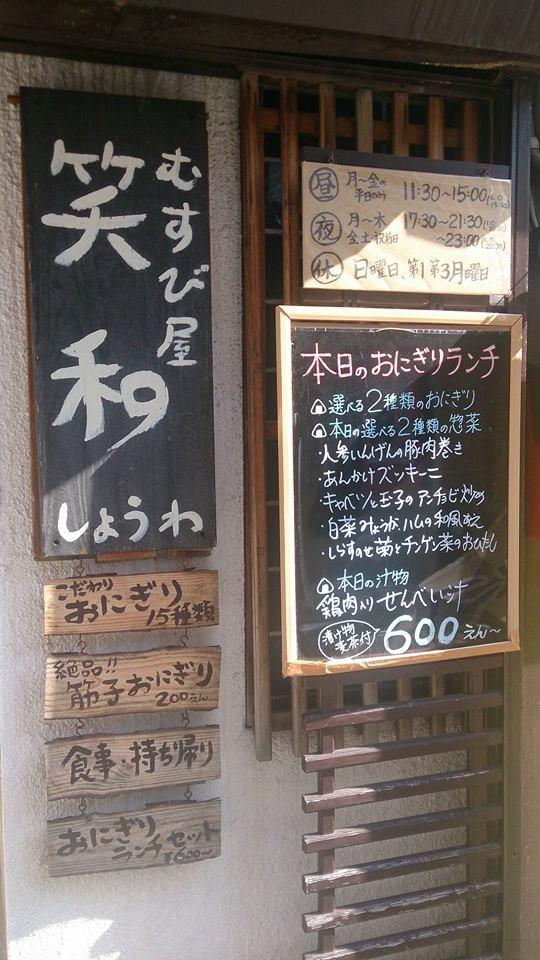 むすび屋
笑和
しょうわ
こだわり
おにぎり
15種類
絶品!!
筋子おにぎり
200えん
食事・持ち帰り
おにぎり
ランチセット
¥600〜
昼 月〜金の平日のみ 11:30〜15:00
夜 月〜木 17:30〜21:30
金土祝前日 〜23:00(L.O 22:30)
休 日曜日、第1第3月曜日
本日のおにぎりランチ
選べる2種類のおにぎり
本日の選べる2種類の惣菜
・人参いんげんの豚肉巻き
・あんかけズッキーニ
・キャベツと玉子のアンチョビ炒め
・白菜みょうがハムの和風あえ
・しらすのせ菊とチンゲン菜のおひたし
本日の汁物
鶏肉入りせんべい汁
漬け物
麦茶付
600えん〜